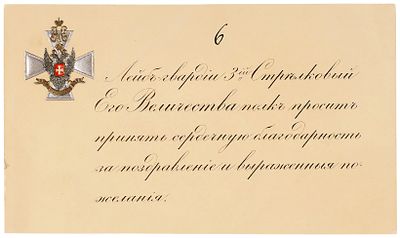 6
Лейбъ-гвардіи 3ій Стрѣлковый
Его Величества полкъ проситъ
принять сердечную благодарность
за поздравленіе и выраженныя по-
желанія.